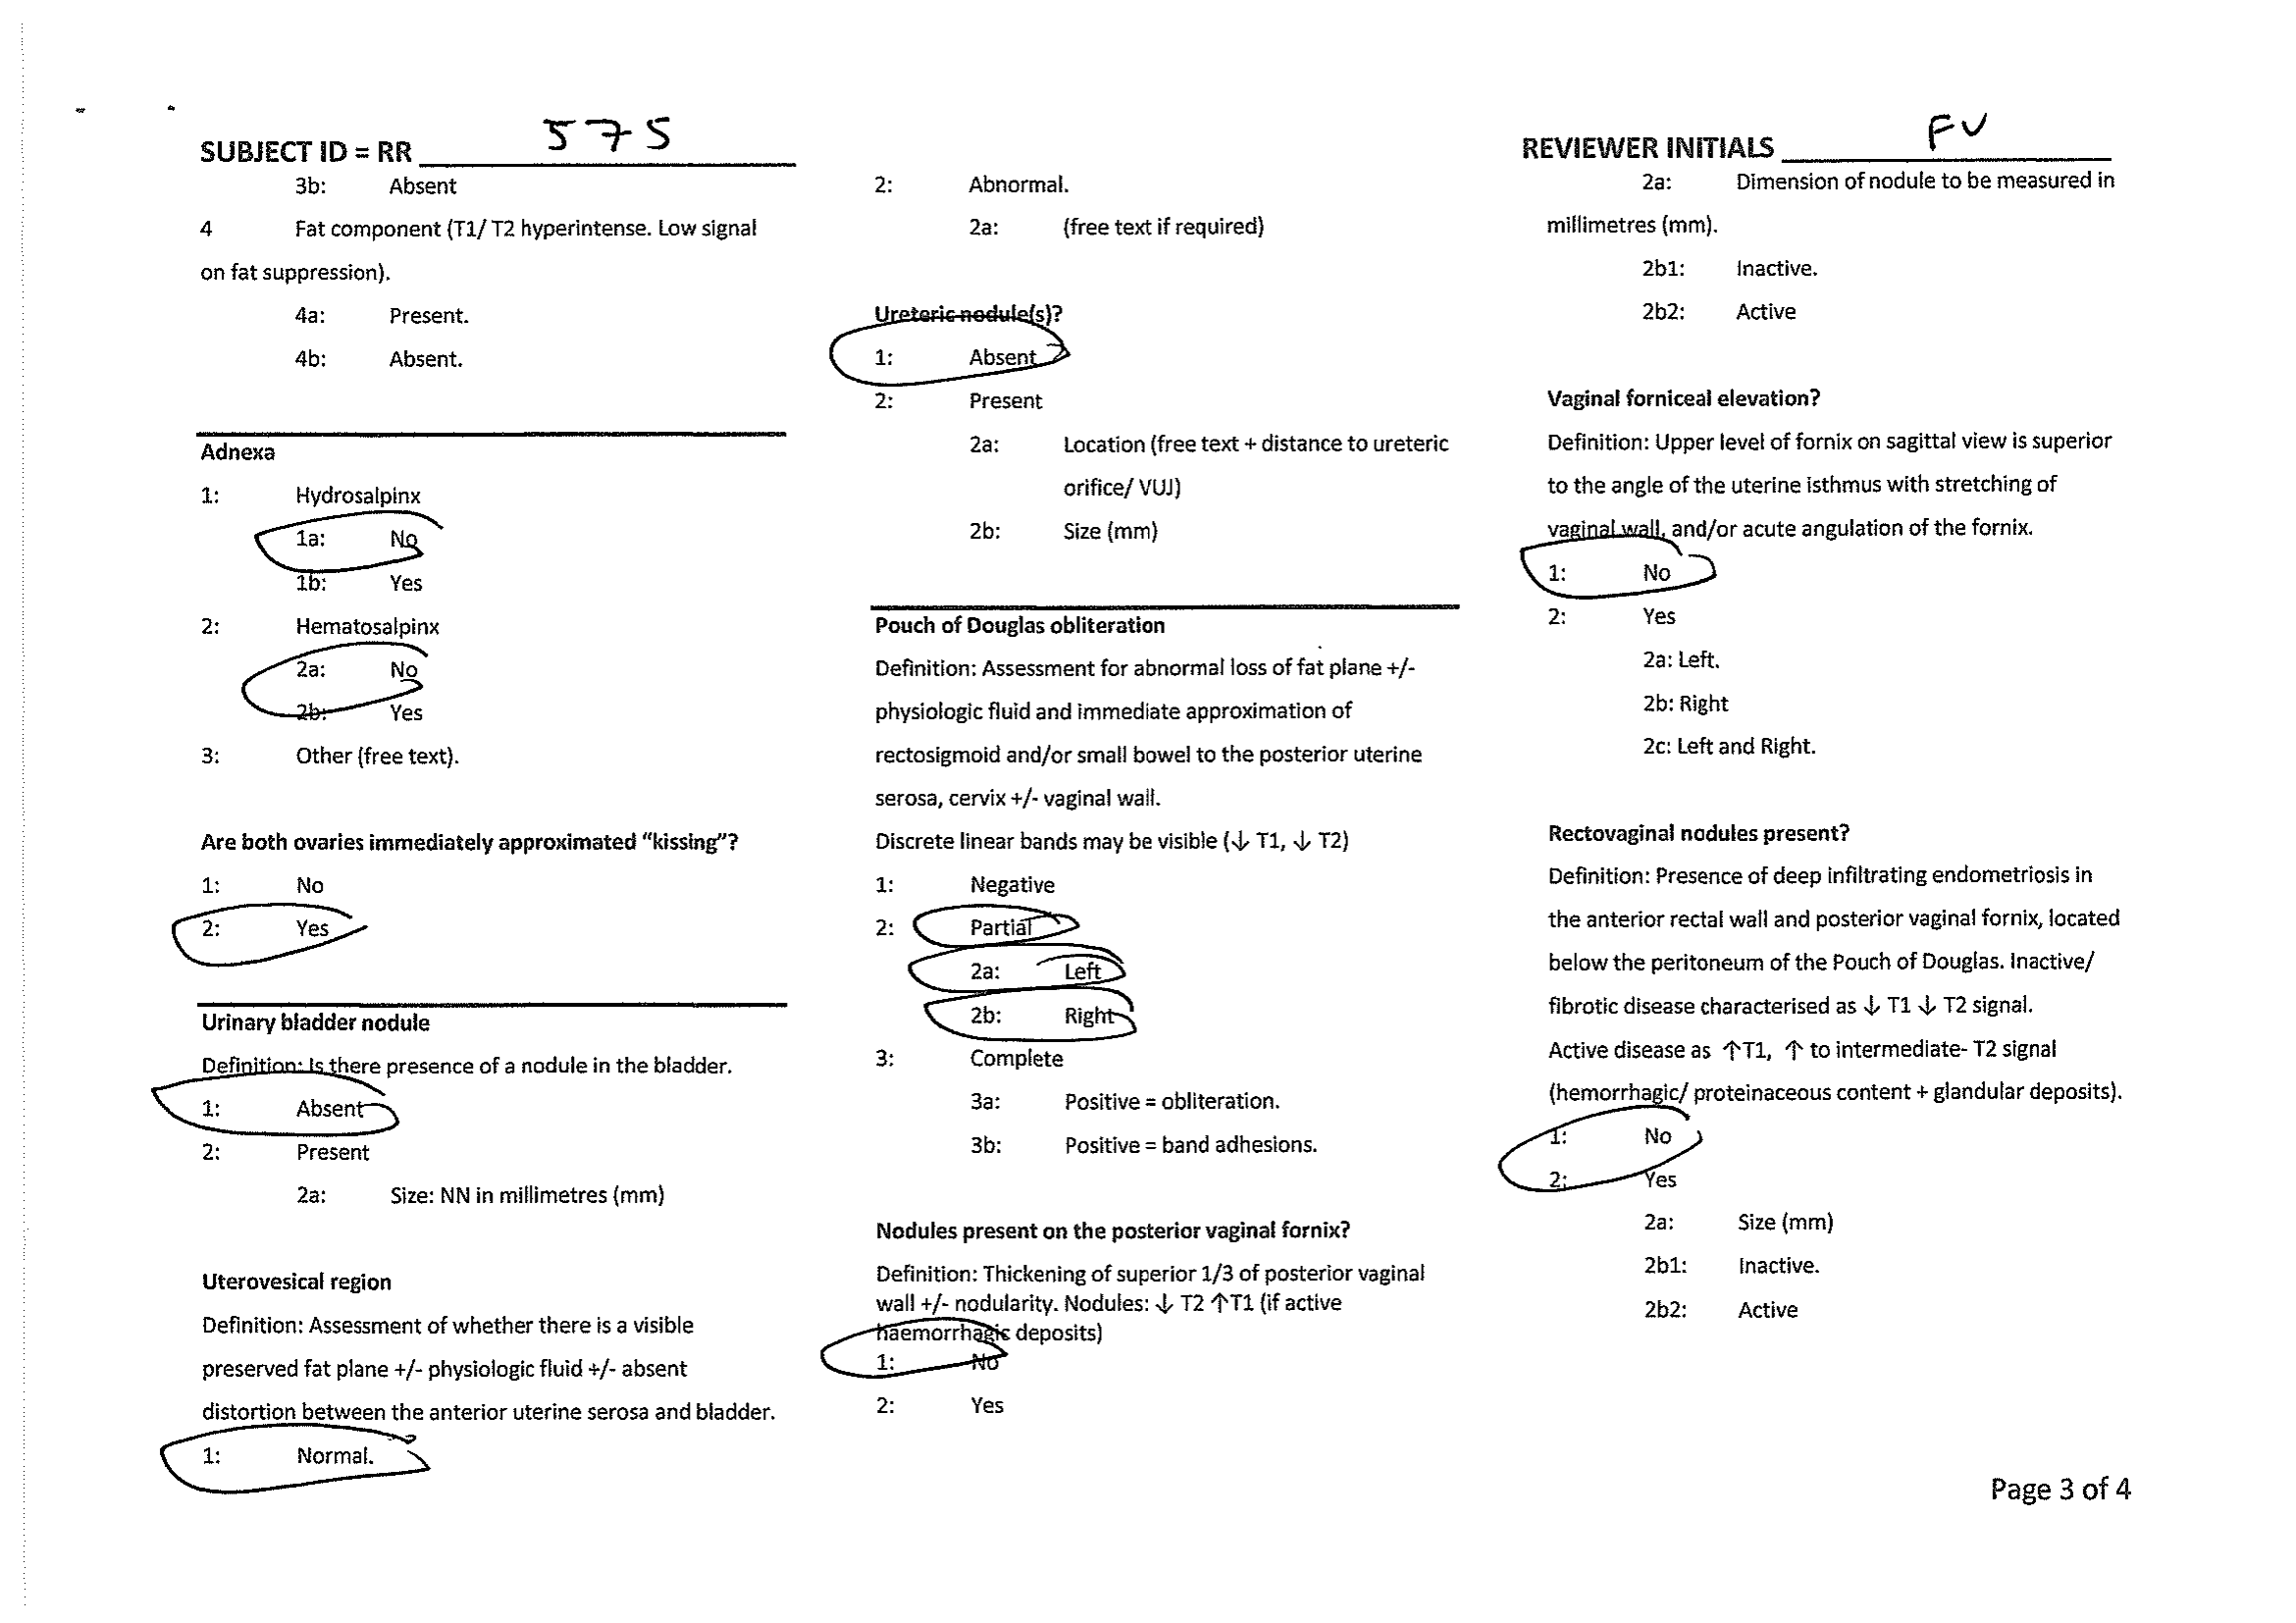 SUBJECT ID = RR 575
3b: Absent
4 Fat component (T1/ T2 hyperintense. Low signal
on fat suppression).
4a: Present.
4b: Absent.
Adnexa
1: Hydrosalpinx
1a: No
1b: Yes
2: Hematosalpinx
2a: No
2b: Yes
3: Other (free text).
Are both ovaries immediately approximated “kissing”?
1: No
2: Yes
Urinary bladder nodule
Definition: Is there presence of a nodule in the bladder.
1: Absent
2: Present
2a: Size: NN in millimetres (mm)
Uterovesical region
Definition: Assessment of whether there is a visible
preserved fat plane +/- physiologic fluid +/- absent
distortion between the anterior uterine serosa and bladder.
1: Normal.
2: Abnormal.
2a: (free text if required)
Ureteric nodule(s)?
1: Absent
2: Present
2a: Location (free text + distance to ureteric
orifice/ VUJ)
2b: Size (mm)
Pouch of Douglas obliteration
Definition: Assessment for abnormal loss of fat plane +/-
physiologic fluid and immediate approximation of
rectosigmoid and/or small bowel to the posterior uterine
serosa, cervix +/- vaginal wall.
Discrete linear bands may be visible (↓ T1, ↓ T2)
1: Negative
2: Partial
2a: Left
2b: Right
3: Complete
3a: Positive = obliteration.
3b: Positive = band adhesions.
Nodules present on the posterior vaginal fornix?
Definition: Thickening of superior 1/3 of posterior vaginal
wall +/- nodularity. Nodules: ↓ T2 ↑T1 (if active
haemorrhagic deposits)
1: No
2: Yes
REVIEWER INITIALS FV
2a: Dimension of nodule to be measured in
millimetres (mm).
2b1: Inactive.
2b2: Active
Vaginal forniceal elevation?
Definition: Upper level of fornix on sagittal view is superior
to the angle of the uterine isthmus with stretching of
vaginal wall, and/or acute angulation of the fornix.
1: No
2: Yes
2a: Left.
2b: Right
2c: Left and Right.
Rectovaginal nodules present?
Definition: Presence of deep infiltrating endometriosis in
the anterior rectal wall and posterior vaginal fornix, located
below the peritoneum of the Pouch of Douglas. Inactive/
fibrotic disease characterised as ↓ T1 ↓ T2 signal.
Active disease as ↑T1, ↑ to intermediate- T2 signal
(hemorrhagic/ proteinaceous content + glandular deposits).
1: No
2: Yes
2a: Size (mm)
2b1: Inactive.
2b2: Active
Page 3 of 4